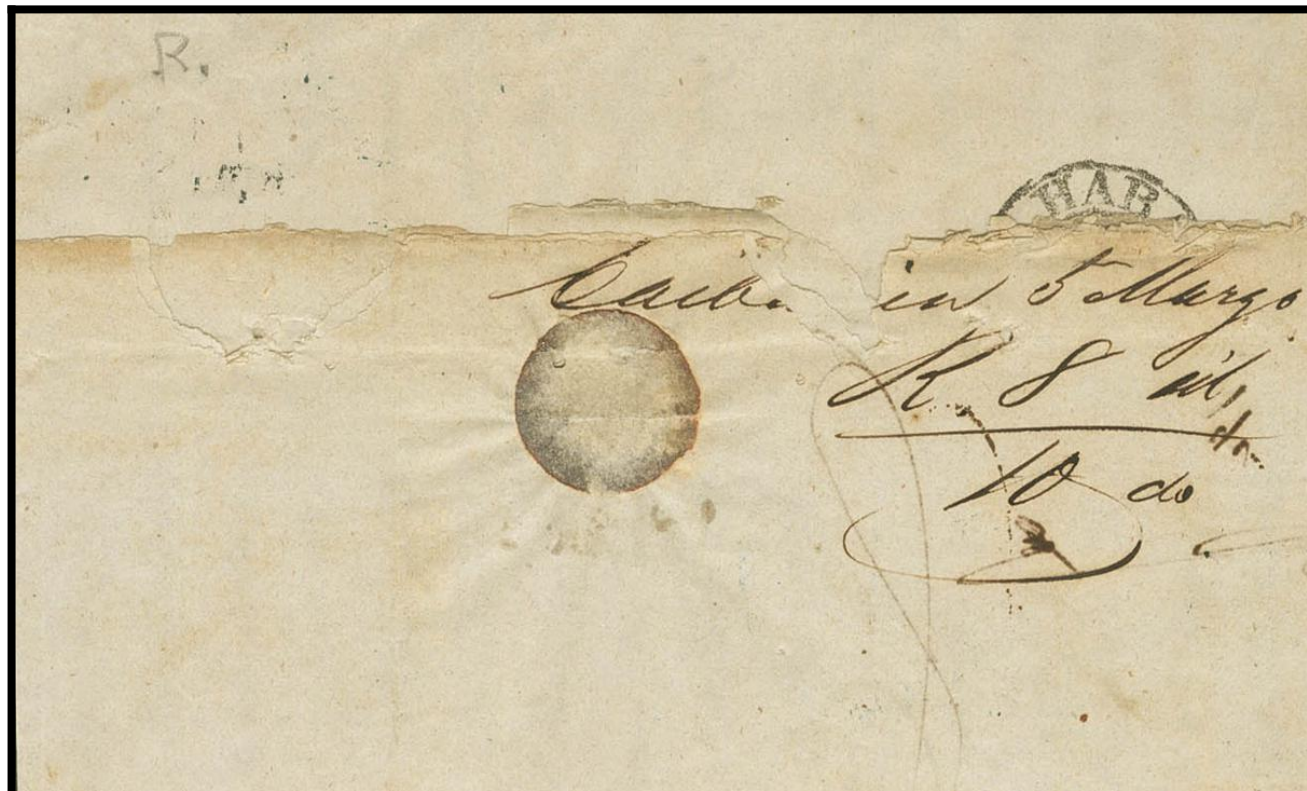 R.
HAB
in 5 Marzo
R 8 id,
10 do